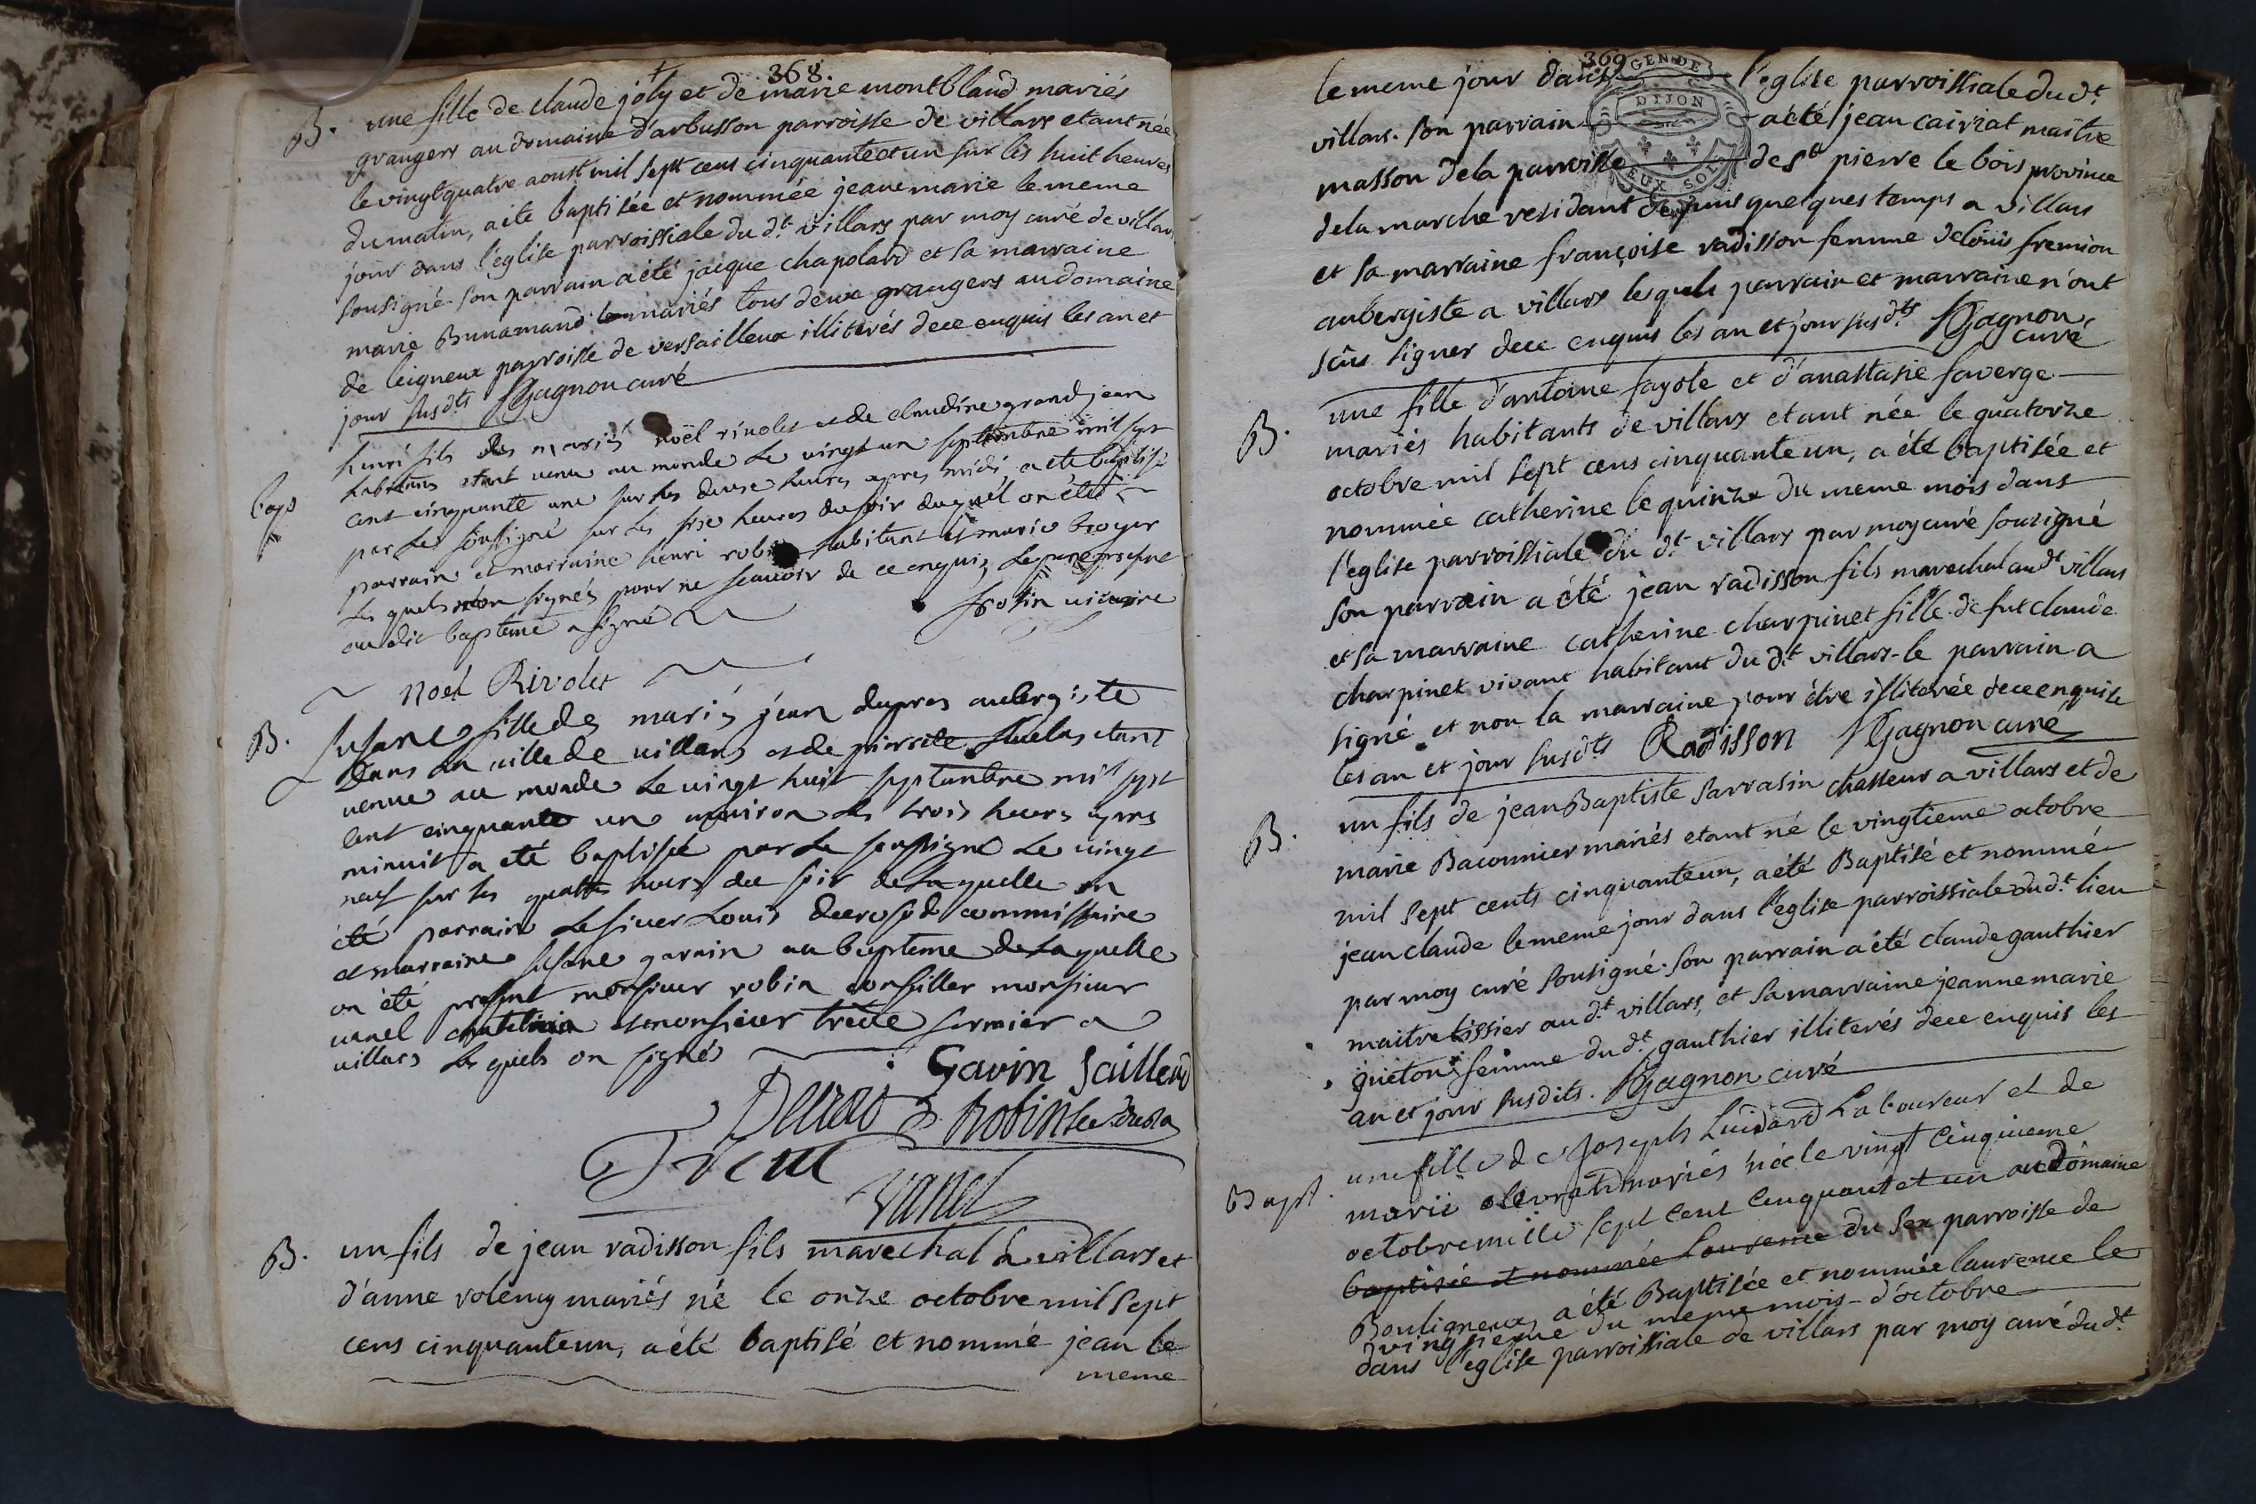 368.
B. une fille de claude joly et de marie montbland mariés
grangers au domaine d'arbusson parroisse de villars etant née
le vingt quatre aoust mil sept cens cinquante et un sur les huit heures
du matin, a ete baptisée et nommée jeane marie le meme
jour dans l'eglise parroissiale du dt. villars par moy curé de villars
sousigné. son parrain a été jacque chapolard et sa marraine
marie Bunamand mariés tous deux grangers au domaine
de leigneux parroisse de versailleux illiterés de ce enquis les an et
jour susdts Gagnon curé
bap henri fils des mariés noël rivolet et de claudine grandjean
habitans etant venu au monde le vingt un septembre mil sept
cent cinquante une sur les douse heures apres midi a ete baptisé
par le soussigné sur les sise heures du soir duquel on été
parrain et marraine henri robin habitant et marie broyer
les quels non signés pour ne scauoir de ce enquis le pere present
au dit bapteme a signé
vicaire
Noel Rivolet
B. Susane fille des mariés jean dupres aubergiste
Dans la ville de villars et de pierrette etant
venue au monde le vingt huit septembre mil sept
cent cinquante un environ les trois heures apres
minuit a eté baptisée par le soussigné le vingt
neuf sur les quattre heures du soir de laquelle on
été parrain le sieur Louis decrosod commissaire
et marraine susane gavain au bapteme de laquelle
on été present monsieur robin consiller monsieur
vanel chatelain et monsieur treue fermier a
villars les quels on signés
Gavin Sailland
Robin
Treue
Vanel
B. un fils de jean radisson fils marechal a villars et
d'anne voleny mariés né le onze octobre mil sept
cens cinquante un, a été baptisé et nommé jean le
meme
369
GEN DE
DIJON
DEUX SOLS
le meme jour dans l'eglise parroissiale du dt.
villars. son parrain a été jean cairiat maitre
masson de la parroisse de st pierre le bois province
de la marche residant depuis quelques temps a villars
et sa marraine françoise radisson femme de loüis fremion
aubergiste a villars lesquels parrain et marraine n'ont
sçus signer de ce enquis les an et jour susdts Gagnon
curé
B. une fille d'antoine fayole et d'anastasie faverge
mariés habitants de villars etant née le quatorze
octobre mil sept cens cinquante un, a été baptisée et
nommée catherine le quinze du meme mois dans
l'eglise parroissiale du dt. villars par moy curé sousigné
son parrain a été jean radisson fils marechal au dt villars
et sa marraine catherine charpinet fille de fut claude
charpinet vivant habitant du dt villars. le parrain a
signé et non la marraine pour être illiterée de ce enquise
les an et jour susdts Radisson Gagnon curé
B. un fils de jean Baptiste sarrasin chasseur a villars et de
marie Baconnier mariés etant né le vingtieme octobre
mil sept cents cinquante un, a été Baptisé et nommé
jean claude le meme jour dans l'eglise parroissiale du dt. lieu
par moy curé sousigné. son parrain a été claude gauthier
maitre tissier au dt. villars, et sa marraine jeanne marie
guieton femme du dt. gauthier illiterés de ce enquis les
an et jour susdits. Gagnon curé
Bapt. une fille de Joseph Luidard Laboureur et de
marie mariés née le vingt cinquieme
octobre mille sept cent cinquant et un au domaine
baptisée et nommée Laurence du sex parroisse de
Bouligneux, a été Baptisée et nommée laurence le
du meme mois d'octobre
dans l'eglise parroissiale de villars par moy curé du dt.